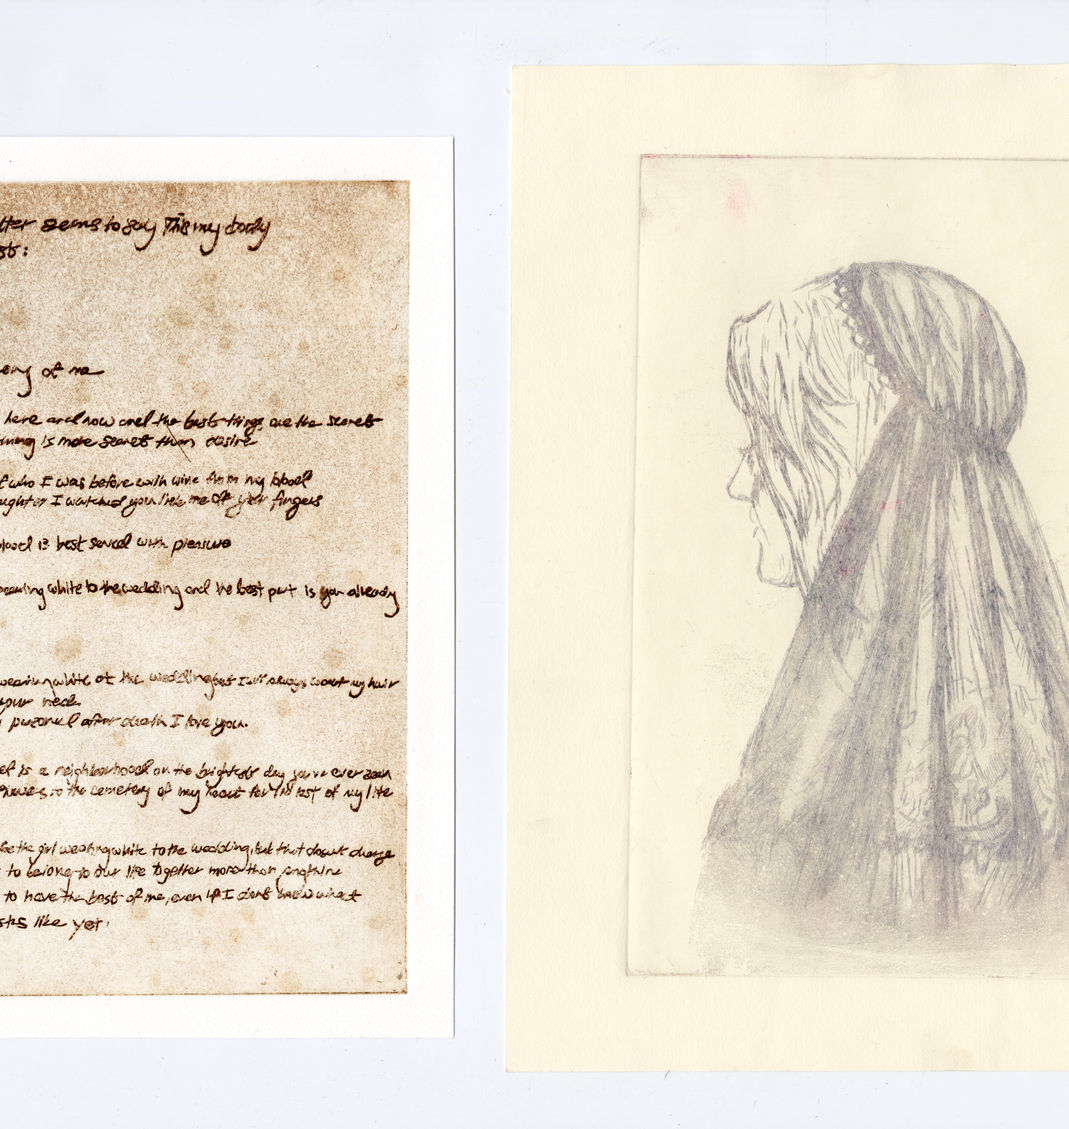 seems to say This my body
of me
here and now and the best things are the secrets
is more secret than desire
who I was before with wine from my blood
I watched you lick me off your fingers
is best served with pleasure
white to the wedding and the best part is you already
wearing white at the wedding but I will always wear my hair
your neck
personal after death I love you.
is a neighbourhood on the brightest day you've ever seen
to the cemetery of my heart for the rest of my life
be the girl wearing white to the wedding, but that doesn't change
to belong to our life together more than anything
to have the best of me, even if I don't know what
like yet.